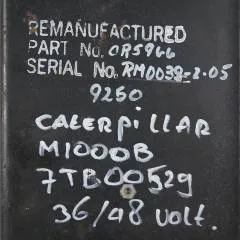 REMANUFACTURED
PART No. 0R5966
SERIAL No. RM0038-2-05
9250
CATERPILLAR
M1000B
7TB00529
36/48 volt.